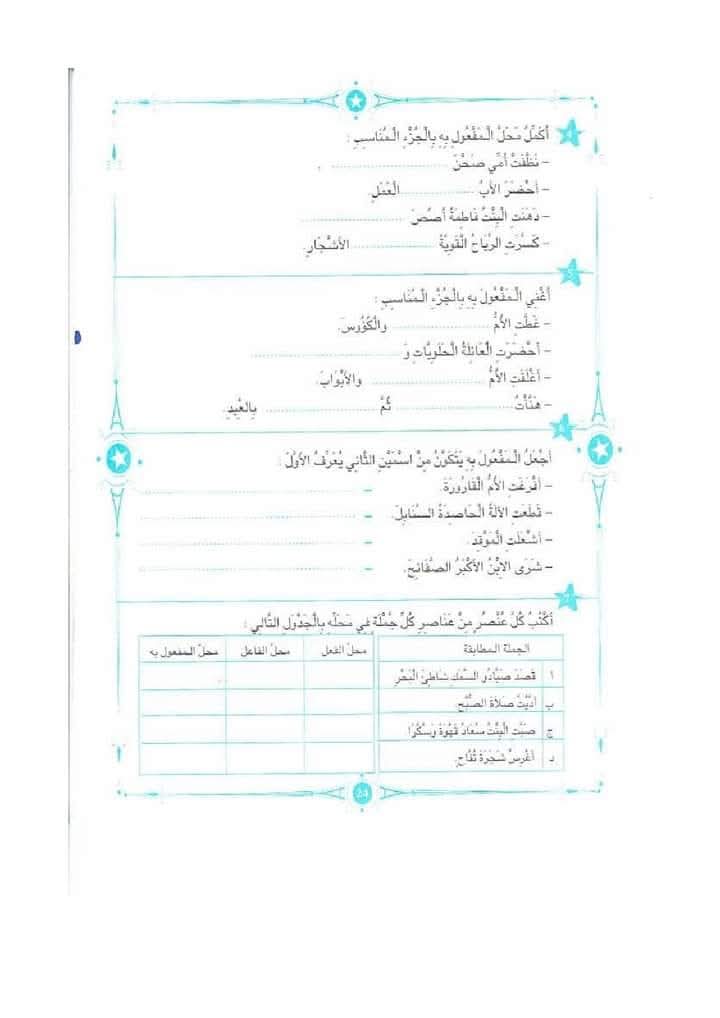 4 أُكْمِلُ مَحَلَّ الْمَفْعُولِ بِهِ بِالْجُزْءِ الْمُنَاسِبِ :
– نَظَّفَتْ أُمِّي صَحْنَ ........................
– أَحْضَرَ الأَبُ ........................ الْعَمَلِ.
– دَهَنَتِ الْبِنْتُ فَاطِمَةُ أُصُصَ ........................
– كَسَّرَتِ الرِّيَاحُ الْقَوِيَّةُ ........................ الأَشْجَارِ.
5 أُغْنِي الْمَفْعُولَ بِهِ بِالْجُزْءِ الْمُنَاسِبِ :
– غَطَّتِ الأُمُّ ........................ وَالْكُؤُوسَ.
– أَحْضَرَتِ الْعَائِلَةُ الْحَلَوِيَّاتِ وَ ........................
– أَغْلَقَتِ الأُمُّ ........................ وَالأَبْوَابَ.
– هَنَّأْتُ ........................ ثُمَّ ........................ بِالْعِيدِ.
6 أَجْعَلُ الْمَفْعُولَ بِهِ يَتَكَوَّنُ مِنْ اسْمَيْنِ الثَّانِي يُعَرِّفُ الأَوَّلَ :
– أَفْرَغَتِ الأُمُّ الْقَارُورَةَ – ........................
– قَطَعَتِ الآلَةُ الْحَاصِدَةُ السَّنَابِلَ. – ........................
– أَشْعَلَتِ الْمَوْقِدَ. – ........................
– شَرَى الاِبْنُ الأَكْبَرُ الصَّفَائِحَ. – ........................
7 أَكْتُبُ كُلَّ عُنْصُرٍ مِنْ عَنَاصِرِ كُلِّ جُمْلَةٍ فِي مَحَلِّهِ بِالْجَدْوَلِ التَّالِي :
الجملة المطابقة محل الفعل محل الفاعل محل المفعول به
أ قَصَدَ صَيَّادُو السَّمَكِ شَاطِئَ الْبَحْرِ
ب أَدَّيْتُ صَلَاةَ الصُّبْحِ.
ج صَبَّتِ الْبِنْتُ سُعَادُ قَهْوَةً وَسُكَّرًا
د أَغْرِسُ شَجَرَةَ تُفَّاحٍ.
24